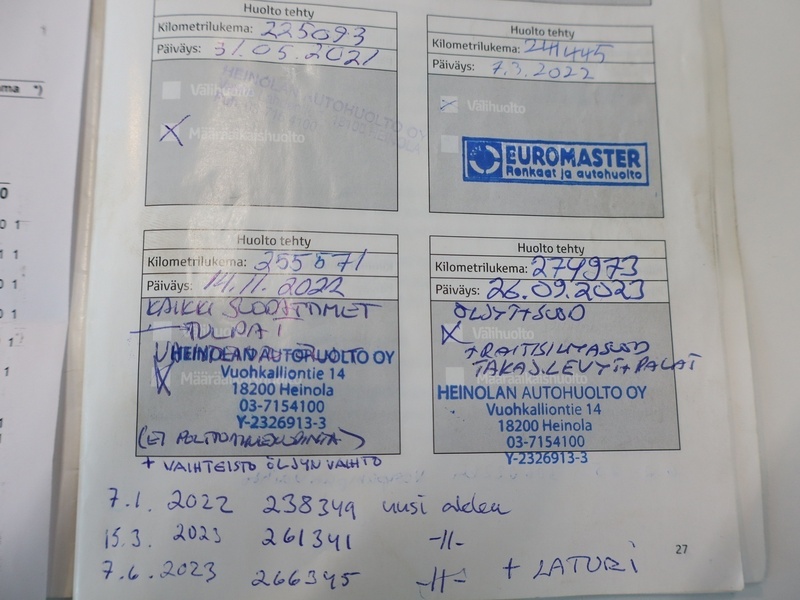 ma *)
Huolto tehty
Kilometrilukema: 225093
Päiväys: 31.05.2021
HEINOLAN AUTOHUOLTO OY
Välihuolto
X Määräaikaishuolto
Huolto tehty
Kilometrilukema: 241445
Päiväys: 7.3.2022
Välihuolto
EUROMASTER
Renkaat ja autohuolto
Huolto tehty
Kilometrilukema: 255571
Päiväys: 14.11.2022
KAIKKI SUODATTIMET
+ TULPAT
HEINOLAN AUTOHUOLTO OY
Vuohkalliontie 14
18200 Heinola
03-7154100
Y-2326913-3
(EI POLTTOAINESUODATINTA)
+ VAIHTEISTO ÖLJYN VAIHTO
Huolto tehty
Kilometrilukema: 274973
Päiväys: 26.09.2023
ÖLJYT+SUOD
X Välihuolto
+RAITISILMASUOD
TAKAJ.LEVYT+PALAT
Määräaikaishuolto
HEINOLAN AUTOHUOLTO OY
Vuohkalliontie 14
18200 Heinola
03-7154100
Y-2326913-3
7.1. 2022 238349 uusi akku
15.3. 2023 261341 -11-
7.6.2023 266345 -11- + LATURI
27